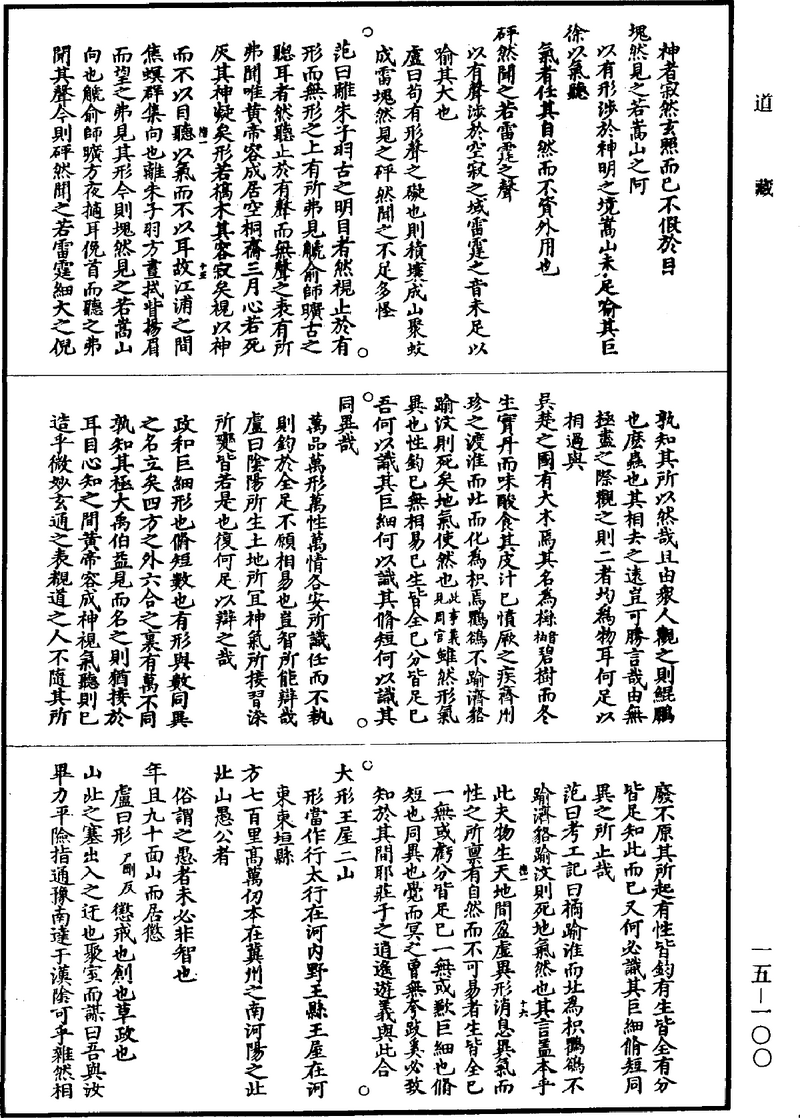 道藏
神者寂然玄照而已不假於目
塊然見之若嵩山之阿
以有形涉於神明之境嵩山未足喻其巨
徐以氣聽
氣者任其自然而不資外用也
砰然聞之若雷霆之聲
以有聲涉於空寂之域雷霆之音未足以
喻其大也
盧曰苟有形聲之礙也則積壤成山聚蚊
成雷塊然見之砰然聞之不足多怪
范曰離朱子羽古之明目者然視止於有
形而無形之上有所弗見䚦俞師曠古之
聰耳者然聽止於有聲而無聲之表有所
弗聞唯黃帝容成居空桐齋三月心若死
灰其神凝矣形若槁木其容寂矣視以神
而不以目聽以氣而不以耳故江浦之間
焦螟群集向也離朱子羽方晝拭眥揚眉
而望之弗見其形今則塊然見之若嵩山
向也䚦俞師曠方夜擿耳俛首而聽之弗
聞其聲今則砰然聞之若雷霆細大之倪
孰知其所以然哉且由衆人觀之則鯤鵬
也麼蟲也其相去之遠豈可勝言哉由無
極盡之際觀之則二者均為物耳何足以
相過與
吳楚之國有大木焉其名為櫾音柚碧樹而冬
生實丹而味酸食其皮汁已憤厥之疾齊州
珍之渡淮而北而化為枳焉鸜鵒不踰濟貉
踰汶則死矣地氣使然也此事義見周官雖然形氣
異也性鈞已無相易已生皆全已分皆足已
吾何以識其巨細何以識其脩短何以識其
同異哉
萬品萬形萬性萬情各安所識任而不執
則鈞於全足不願相易也豈智所能辯哉
盧曰陰陽所生土地所宜神氣所接習染
所變皆若是也復何足以辯之哉
政和巨細形也脩短數也有形與數同異
之名立矣四方之外六合之裏有萬不同
孰知其極大禹伯益見而名之則猶接於
耳目心知之間黃帝容成神視氣聽則已
造乎微妙玄通之表覩道之人不隨其所
廢不原其所起有性皆鈞有生皆全有分
皆足知此而已又何必識其巨細脩短同
異之所止哉
范曰考工記曰橘踰淮而北為枳鸜鵒不
踰濟貉踰汶則死地氣然也其言蓋本乎
此夫物生天地間盈虛異形消息異氣而
性之所禀有自然而不可易者生皆全已
一無或虧分皆足已一無或歉巨細也脩
短也同異也覺而冥之曾無夸跂奚必致
知於其間耶莊子之逍遙遊義與此合
大形王屋二山
形當作行太行在河內野王縣王屋在河
東東垣縣
方七百里高萬仞本在冀州之南河陽之北
北山愚公者
俗謂之愚者未必非智也
年且九十面山而居懲
盧曰形戶剛反懲戒也創也草政也
山北之塞出入之迂也聚室而謀曰吾與汝
畢力平險指通豫南達于漢陰可乎雜然相
一五—一〇〇